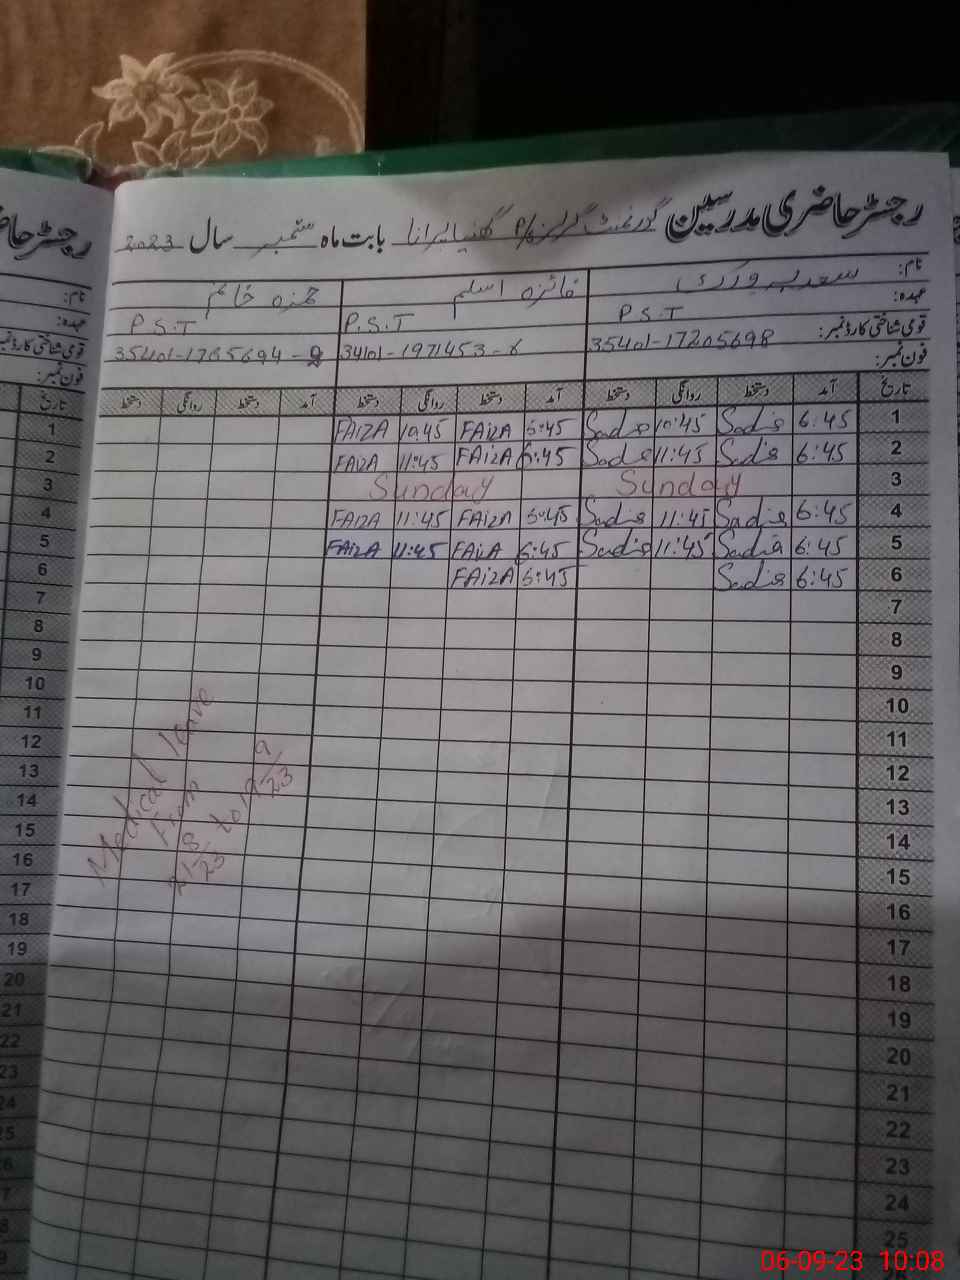 رجسٹر حاضری مدرسین گورنمنٹ گرلز P/S گھنیا لیرانا بابت ماہ ستمبر سال 2023
نام: سعدیہ ورک فائزہ اسلم حمزہ خانم
عہدہ: P.S.T P.S.T P.S.T
قومی شناختی کارڈ نمبر: 35401-17205698 34101-1971453-8 35401-1785694-2
فون نمبر:
تاریخ آمد دستخط روانگی دستخط آمد دستخط روانگی دستخط آمد دستخط روانگی دستخط
1 6:45 Sadia 10:45 Sadia 6:45 FAIZA 10:45 FAIZA
2 6:45 Sadia 11:45 Sadia 6:45 FAIZA 11:45 FAIZA
3 Sunday Sunday
4 6:45 Sadia 11:45 Sadia 6:45 FAIZA 11:45 FAIZA
5 6:45 Sadia 11:45 Sadia 6:45 FAIZA 11:45 FAIZA
6 6:45 Sadia 6:45 FAIZA
7
8
9
10
11
12
13
14
15
16
17
18
19
20
21
22
23
24
25
Medical leave
From
21-8-23 to 19-9-23
رجسٹر حا
نام:
عہدہ:
قومی شناختی کارڈ نمبر
فون نمبر:
تاریخ
1
2
3
4
5
6
7
8
9
10
11
12
13
14
15
16
17
18
19
20
21
22
23
24
25
06-09-23 10:08